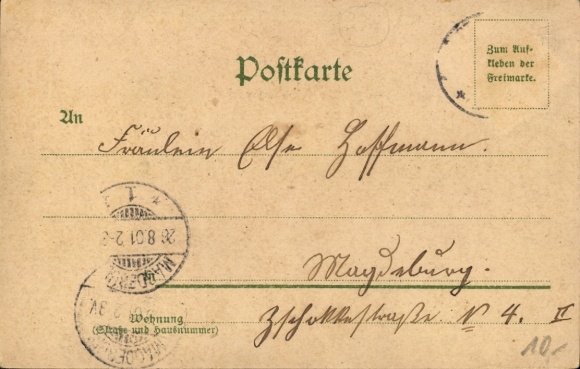 Postkarte
Zum Auf-
kleben der
Freimarke.
An
Fräulein Else Hoffmann.
1
26.8.01 2-3
MAGDEBURG
Magdeburg.
Wohnung
(Straße und Hausnummer)
Zschokkestraße № 4. II
MAGDEBURG
10,-